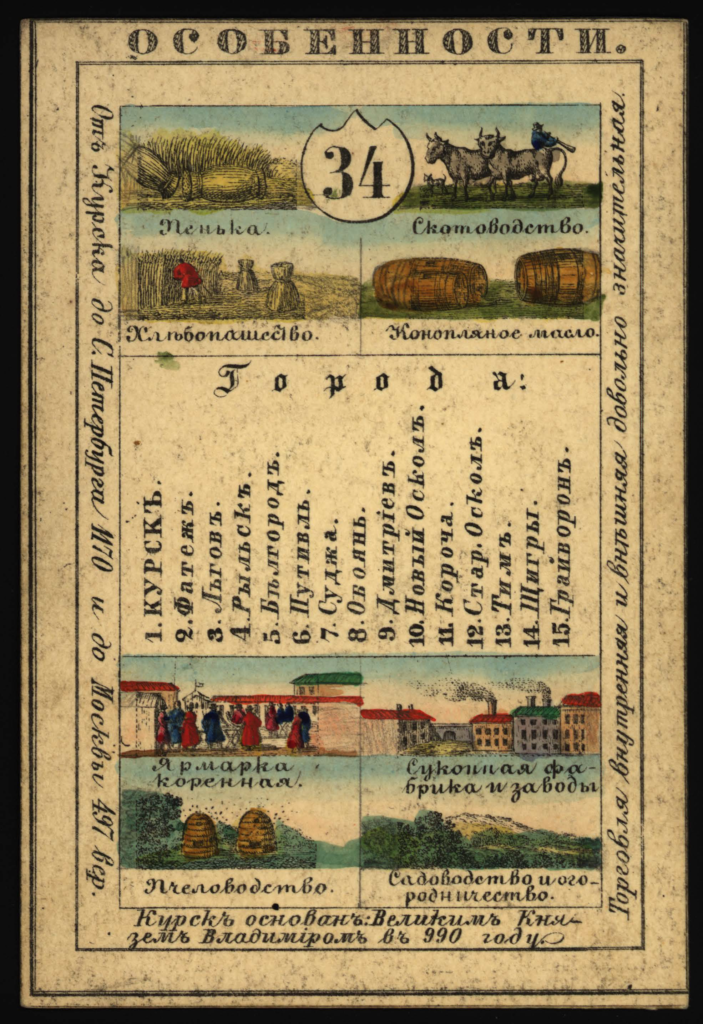 ОСОБЕННОСТИ.
34
Пенька.
Скотоводство.
Хлѣбопашество.
Конопляное масло.
Города:
1. КУРСКЪ.
2. Фатежъ.
3. Льговъ.
4. Рыльскъ.
5. Бѣлгородъ.
6. Путивль.
7. Суджа.
8. Обоянь.
9. Дмитріевъ.
10. Новый Осколъ.
11. Короча.
12. Стар. Осколъ.
13. Тимъ.
14. Щигры.
15. Грайворонъ.
Ярмарка
коренная.
Суконная фа-
брика и заводы
Пчеловодство.
Садоводство и ого-
родничество.
Курскъ основанъ: Великимъ Кня-
земъ Владиміромъ въ 990 году
Отъ Курска до С. Петербурга 1170 и до Москвы 497 вер.
Торговля внутренняя и внѣшняя довольно значительная.